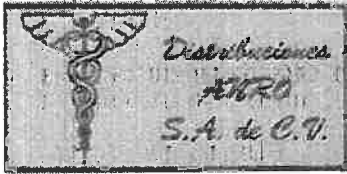 Distribuciones
S.A. de C.V.